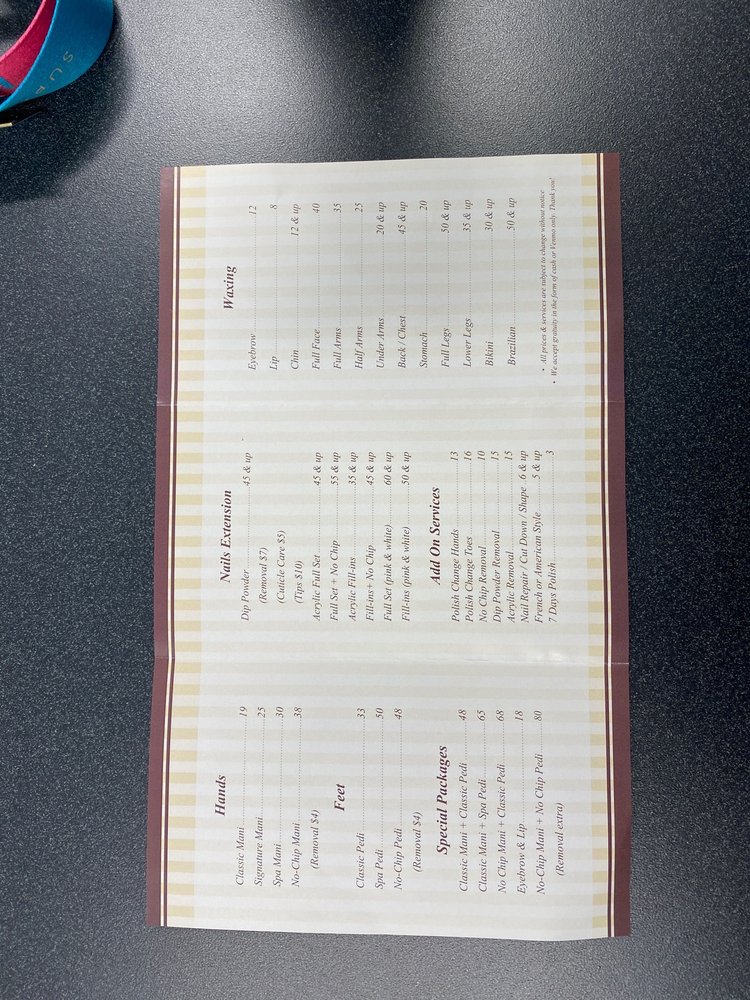 Hands
Classic Mani 19
Signature Mani 25
Spa Mani 30
No-Chip Mani 38
(Removal $4)
Feet
Classic Pedi 33
Spa Pedi 50
No-Chip Pedi 48
(Removal $4)
Special Packages
Classic Mani + Classic Pedi 48
Classic Mani + Spa Pedi 65
No Chip Mani + Classic Pedi 68
Eyebrow & Lip 18
No-Chip Mani + No Chip Pedi 80
(Removal extra)
Nails Extension
Dip Powder 45 & up
(Removal $7)
(Cuticle Care $5)
(Tips $10)
Acrylic Full Set 45 & up
Full Set + No Chip 55 & up
Acrylic Fill-ins 35 & up
Fill-ins+ No Chip 45 & up
Full Set (pink & white) 60 & up
Fill-ins (pink & white) 50 & up
Add On Services
Polish Change Hands 13
Polish Change Toes 16
No Chip Removal 10
Dip Powder Removal 15
Acrylic Removal 15
Nail Repair / Cut Down / Shape 6 & up
French or American Style 5 & up
7 Days Polish 3
Waxing
Eyebrow 12
Lip 8
Chin 12 & up
Full Face 40
Full Arms 35
Half Arms 25
Under Arms 20 & up
Back / Chest 45 & up
Stomach 20
Full Legs 50 & up
Lower Legs 35 & up
Bikini 30 & up
Brazilian 50 & up
• All prices & services are subject to change without notice
• We accept gratuity in the form of cash or Venmo only. Thank you!